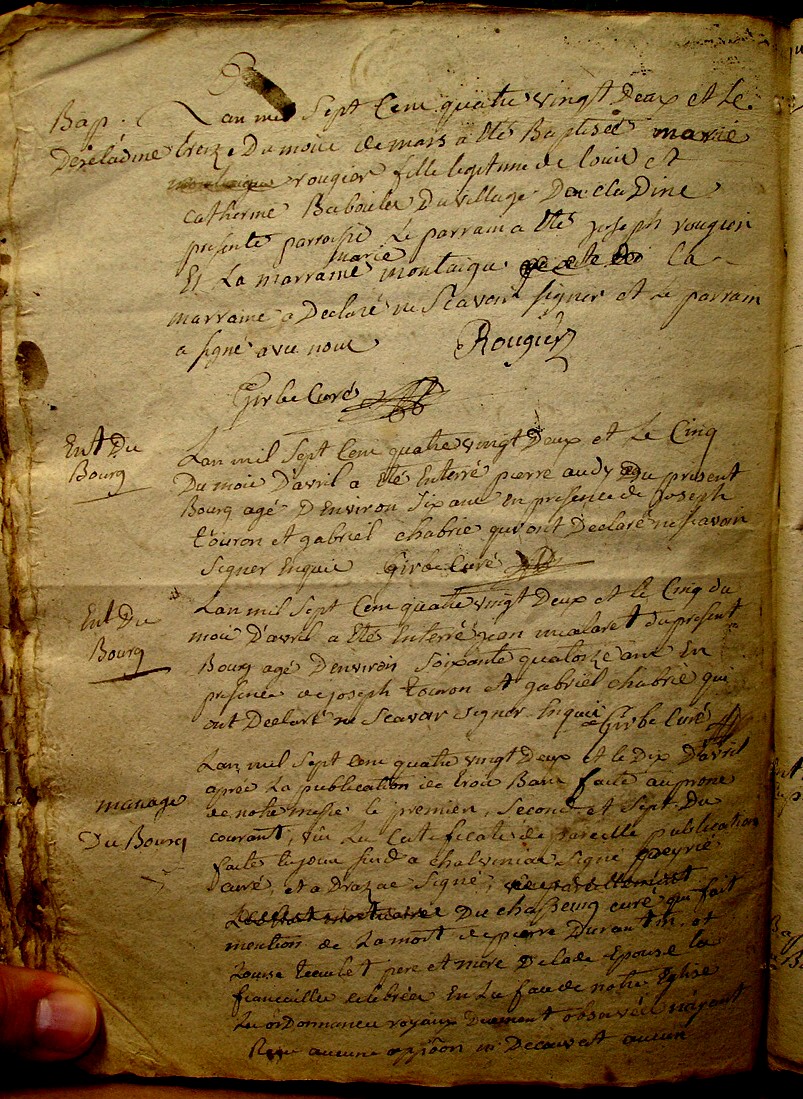 Bap.
Deseladine
Lan mil Sept Cem quatre vingt Deux et Le
treize Du moiie de mars a été Baptisée marie
rougier fille legitime de louis et
catherine Du village De cladine
presente parroisse Le parrain a été joseph rougier
Et La marraine marie montaigu La
marraine a Declaré ne Scavoir signer et Le parrain
a signé avec nous Rougier
Girbe Curé
Ent Du
Bourg
Lan mil Sept Cem quatre vingt Deux et Le Cinq
Du moie D'avril a été Enterré pierre audy Du present
Bourg agé D Environ Six ans En presence de joseph
touron et gabriel chabrie qui ont Declaré ne scavoir
Signer Enquis Girbe Curé
Ent Du
Bourg
Lan mil Sept Cem quatre vingt Deux et le Cinq du
moie D'avril a été Enterré jean malaret du present
Bourg agé D'environ Soixante quatorze ans En
presence de joseph touron et gabriel chabrie qui
ont Declaré ne Scavoir signer Enquis Girbe Curé
mariage
Du Bourg
Lan mil Sept Cem quatre vingt Deux et le Dix D'avril
aprés La publication de troie Bans faite au prone
de notre messe le premier, Second et Sept Du
courant, vû Le Certificate de pareille publication
faite le jour a chalviniac Signé peyrie
curé, et a Drazac Signé,
Du curé qui fait
mention de La mort de pierre Durantin et
Louise teculet pere et mere De lade Epouse la
fiancaille celebrée En La face de notre Eglise
Le ordonnance royaux Duement observée nayant
aucune opp̃oon ni Decouvert aucun